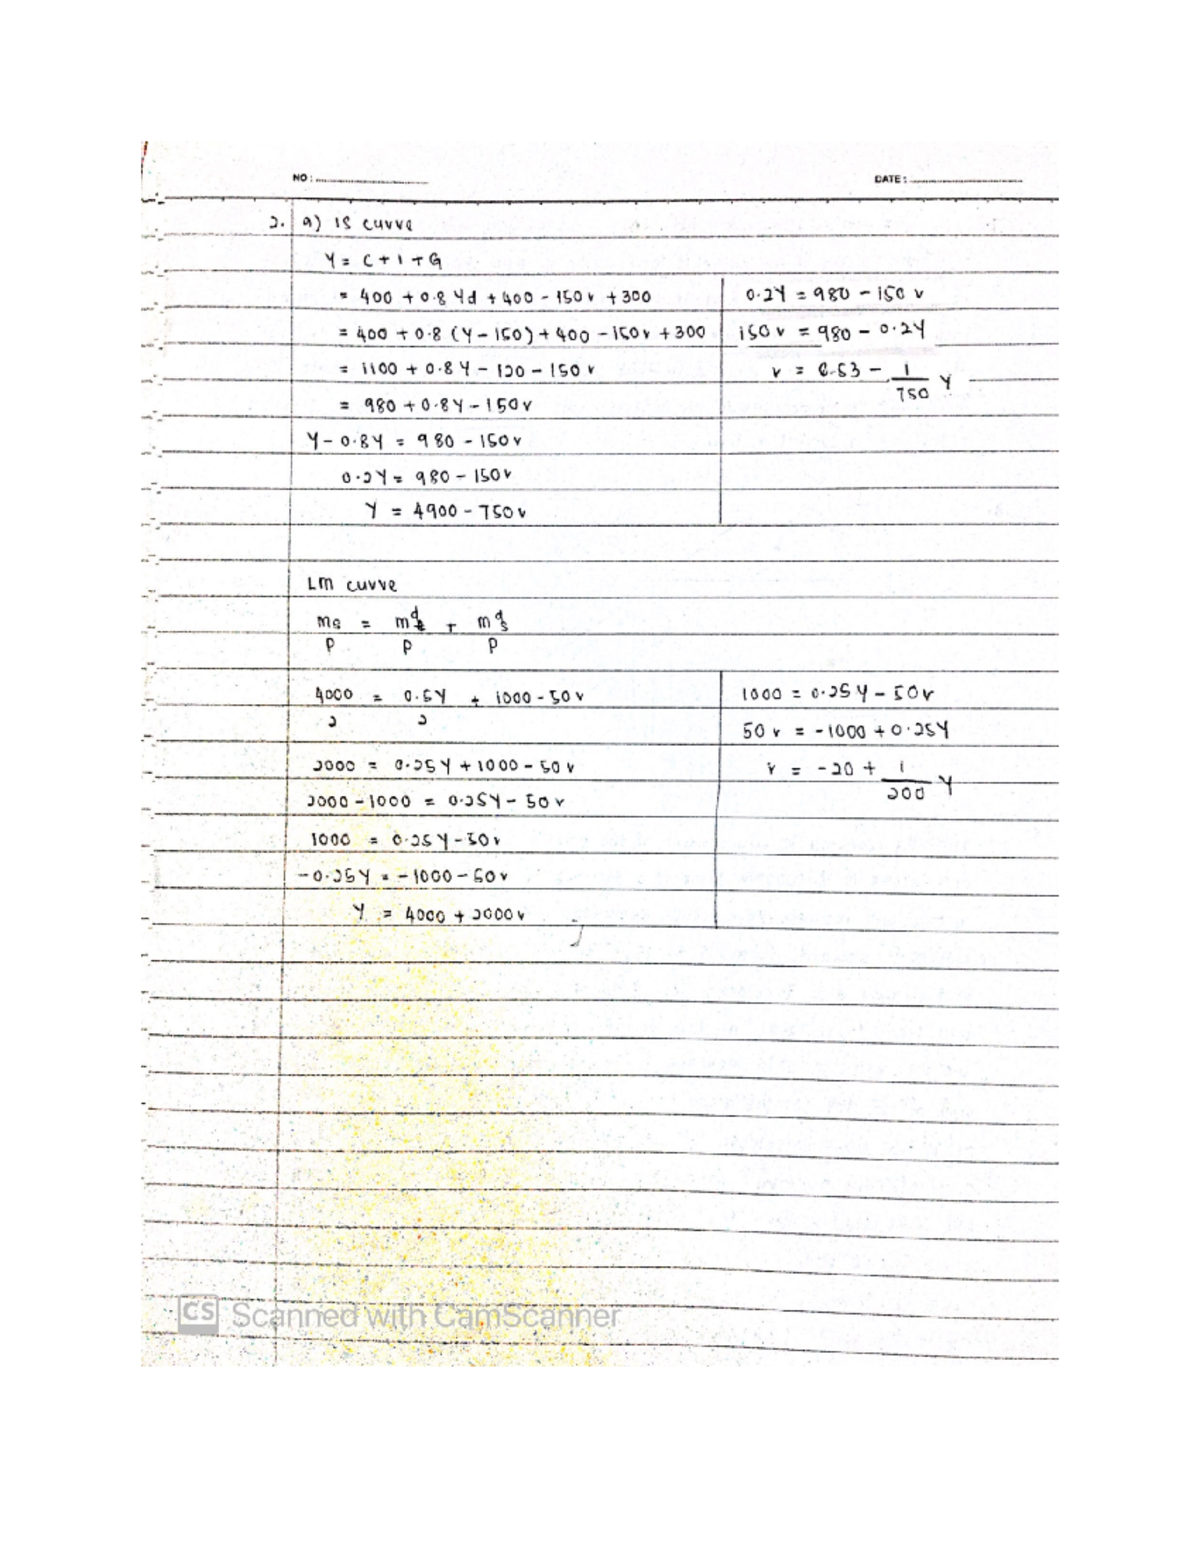 NO :
DATE :
2. a) IS curve
Y = C + I + G
= 400 + 0.8 Yd + 400 - 150 r + 300
= 400 + 0.8 (Y - 150) + 400 - 150 r + 300
= 1100 + 0.8 Y - 120 - 150 r
= 980 + 0.8Y - 150r
Y - 0.8Y = 980 - 150r
0.2Y = 980 - 150r
Y = 4900 - 750r
0.2Y = 980 - 150 r
150 r = 980 - 0.2Y
r = 6.53 - 1/750 Y
LM curve
ms/p = mdt/p + mds/p
4000/2 = 0.5Y/2 + 1000 - 50 r
2000 = 0.25Y + 1000 - 50 r
2000 - 1000 = 0.25Y - 50 r
1000 = 0.25 Y - 50r
-0.25Y = -1000 - 50r
Y = 4000 + 2000r
1000 = 0.25 Y - 50r
50 r = -1000 + 0.25Y
r = -20 + 1/200 Y
CS Scanned with CamScanner